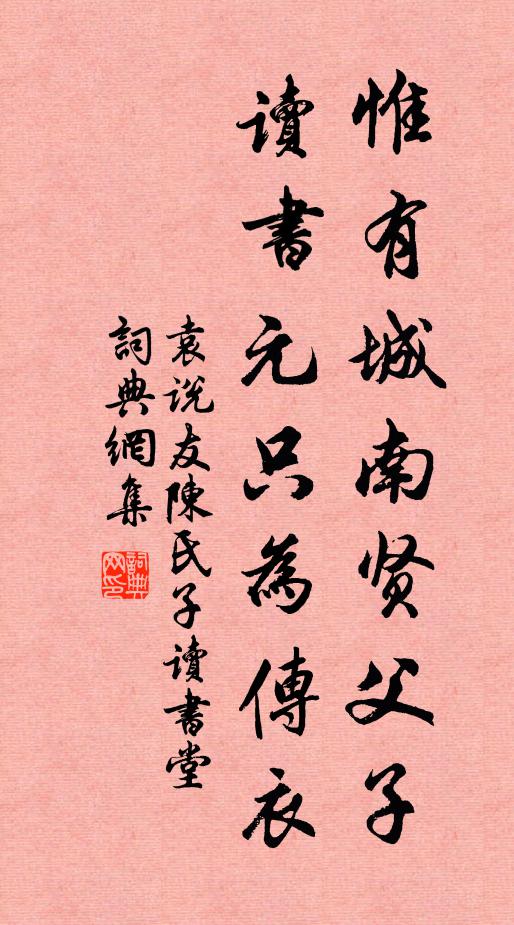 惟有城南贤父子
讀書元只為傳衣
袁说友陳氏子讀書堂
詞典網集
詞典网印